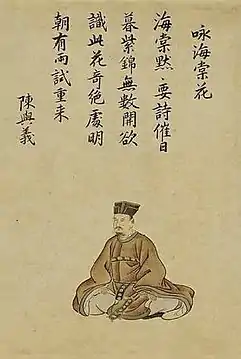 咏海棠花
海棠默默要詩催日
暮紫錦無數開欲
識此花奇絕處明
朝有雨試重来
陳與義